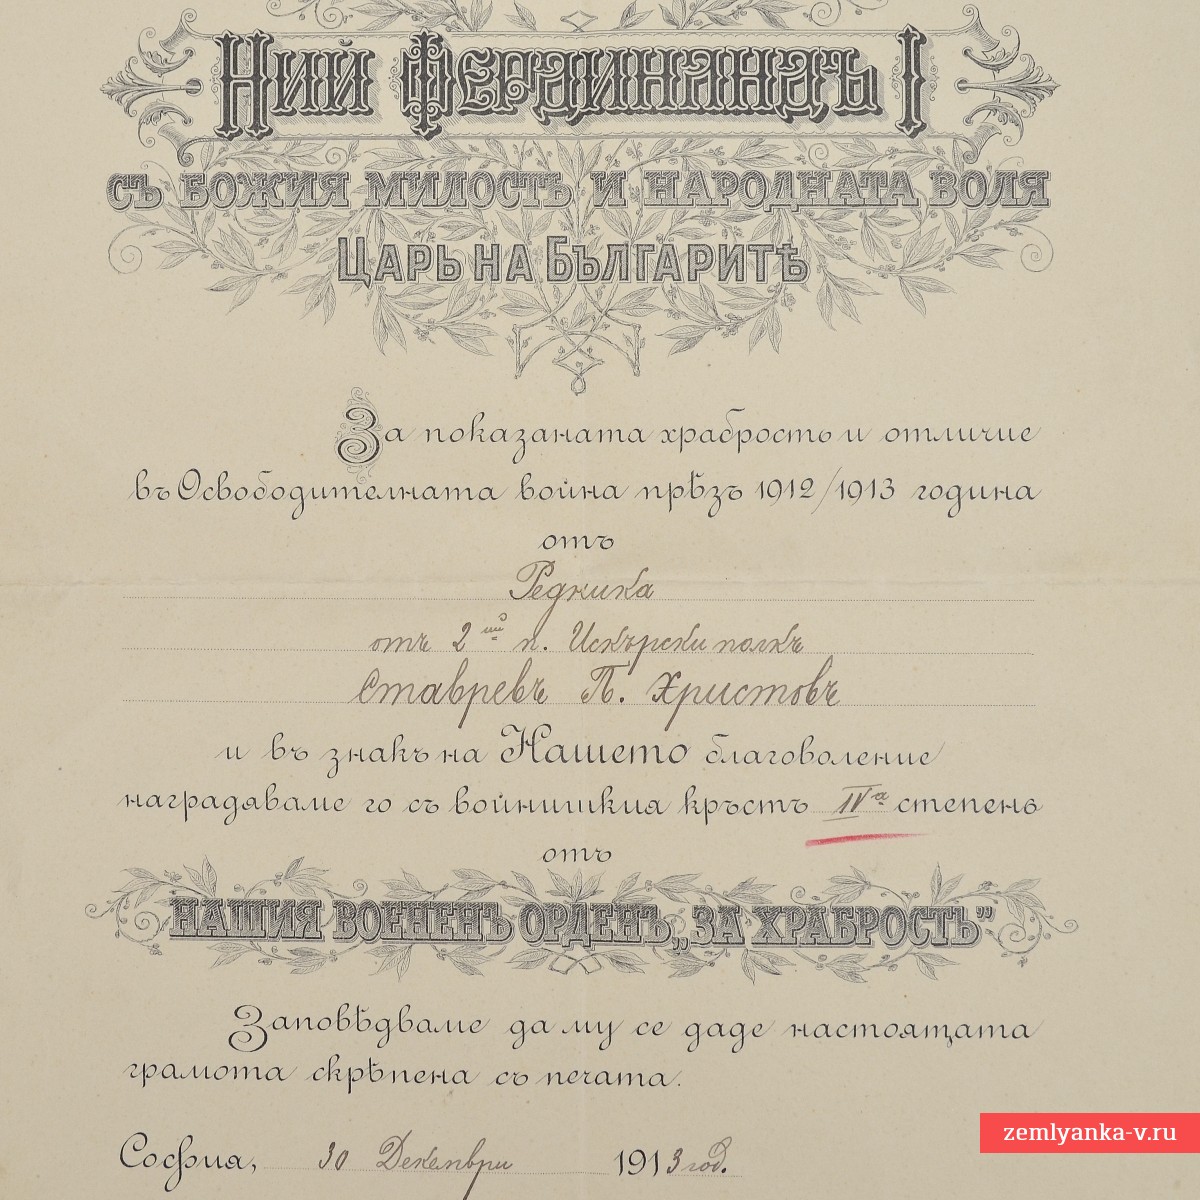 Ний Фердинандъ I
СЪ БОЖИЯ МИЛОСТЬ И НАРОДНАТА ВОЛЯ
ЦАРЬ НА БЪЛГАРИТѢ
За показаната храбрость и отличие
въ Освободителната война прѣзъ 1912/1913 година
отъ
Редника
отъ 2ий п. Искърски полкъ
Ставревъ П. Христовъ
и въ знакъ на Нашето благоволение
наградяваме го съ войнишкия кръстъ IVа степень
отъ
НАШИЯ ВОЕНЕНЪ ОРДЕНЪ „ЗА ХРАБРОСТЬ”
Заповѣдваме да му се даде настоящата
грамота скрѣпена съ печата.
София, 30 Декември 1913 год.
zemlyanka-v.ru